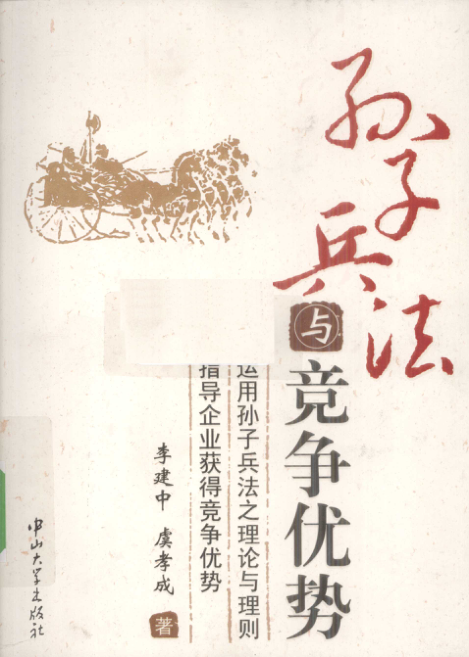 孙子兵法
与
竞争优势
运用孙子兵法之理论与理则
指导企业获得竞争优势
李建中 虞孝成 著
中山大学出版社